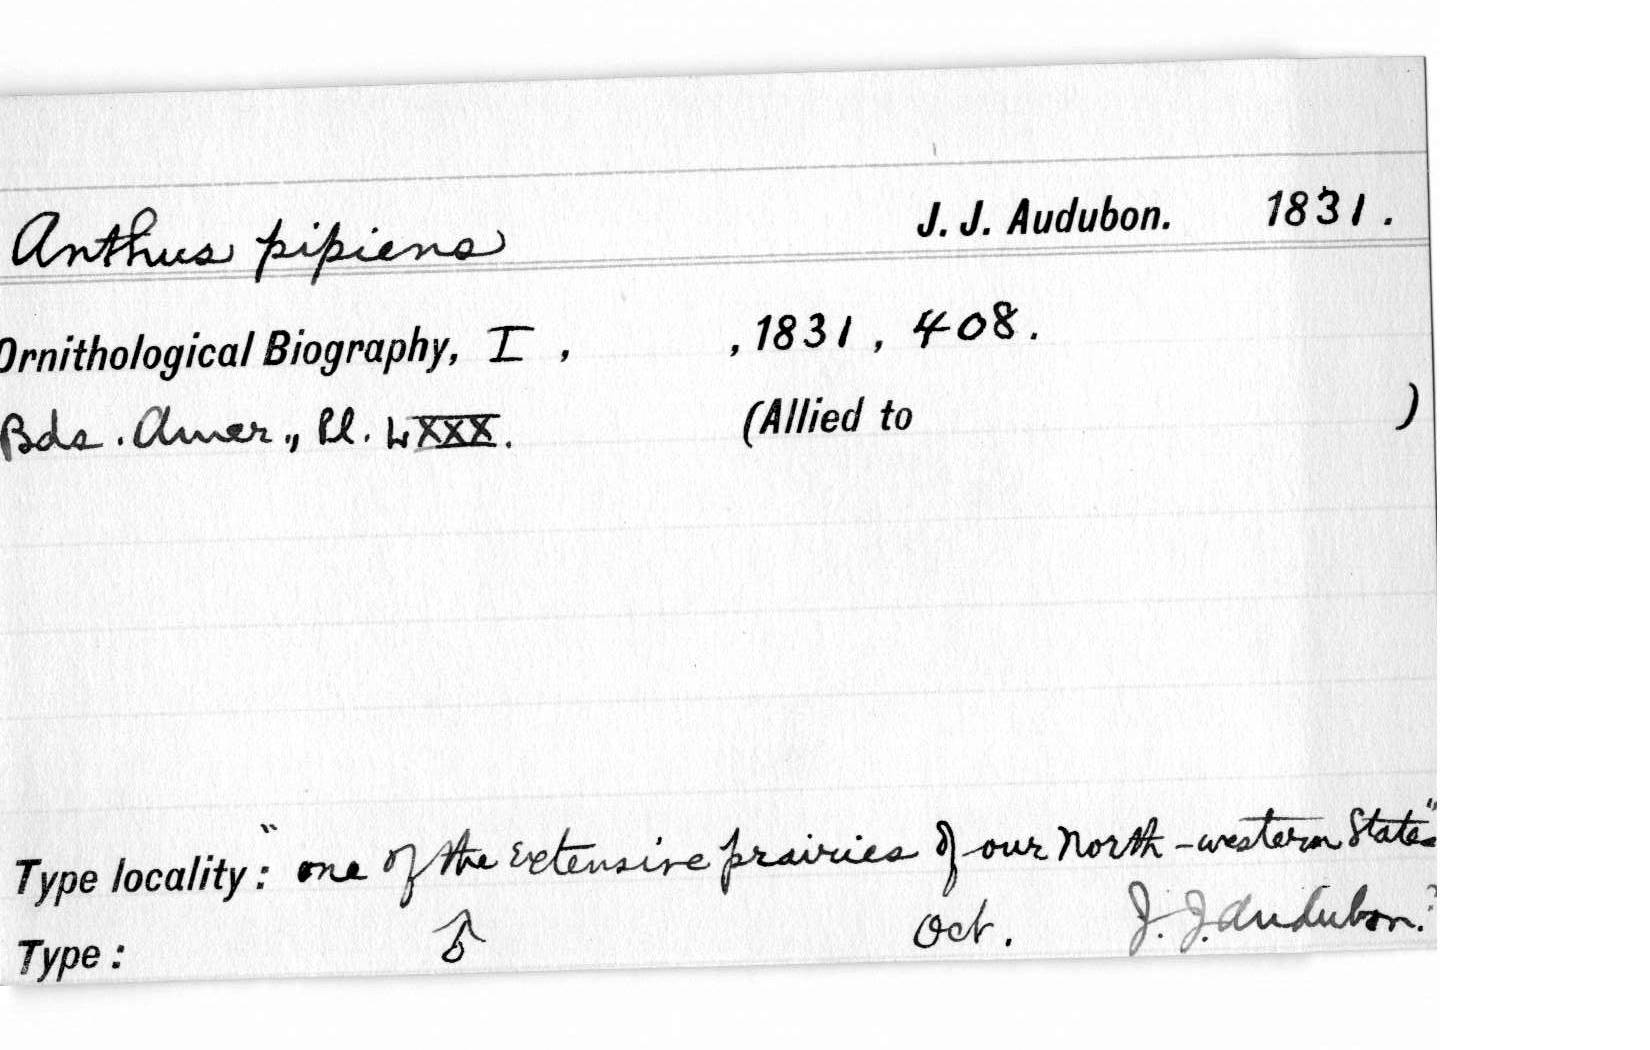 Anthus pipiens J. J. Audubon. 1831.
Ornithological Biography, I , , 1831 , 408.
Bds. Amer., Pl. LXXX. (Allied to )
Type locality : "one of the extensive prairies of our North-western States"
Type : ♂ Oct. J. J. Audubon.?